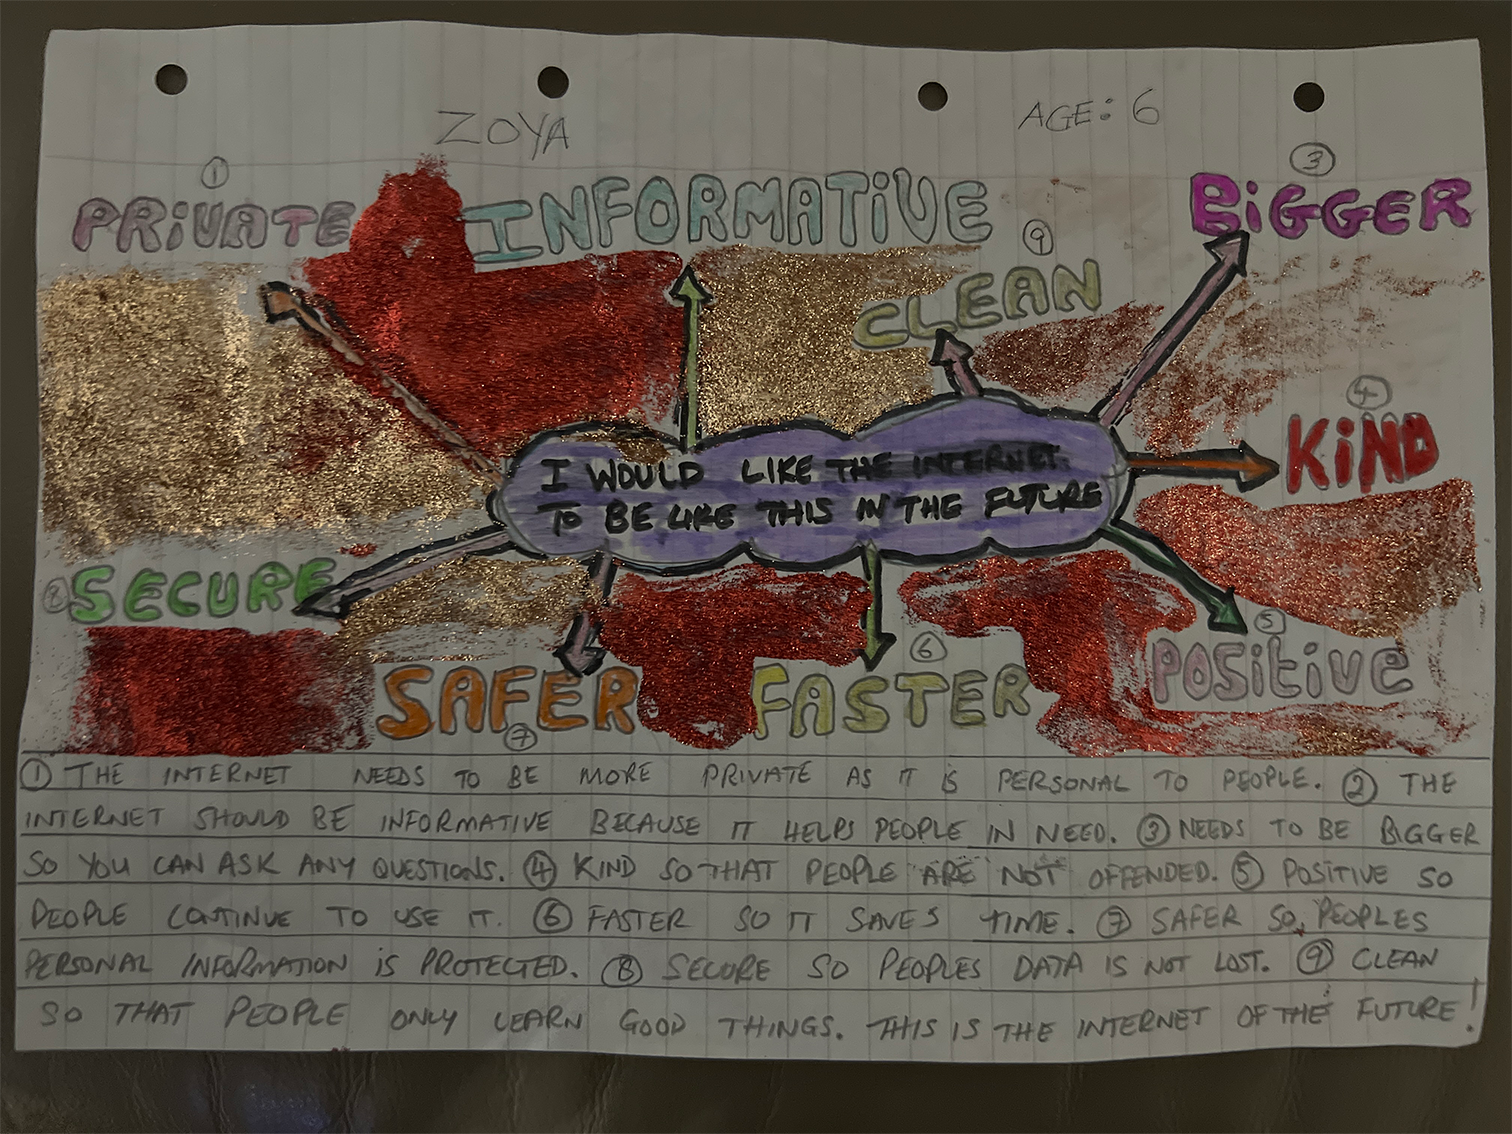 ZOYA
AGE: 6
① PRIVATE
INFORMATIVE
③ BIGGER
⑨ CLEAN
④ KIND
I WOULD LIKE THE INTERNET
TO BE LIKE THIS IN THE FUTURE
⑧ SECURE
⑤ POSITIVE
⑥ FASTER
SAFER ⑦
① THE INTERNET NEEDS TO BE MORE PRIVATE AS IT IS PERSONAL TO PEOPLE. ② THE
INTERNET SHOULD BE INFORMATIVE BECAUSE IT HELPS PEOPLE IN NEED. ③ NEEDS TO BE BIGGER
SO YOU CAN ASK ANY QUESTIONS. ④ KIND SO THAT PEOPLE ARE NOT OFFENDED. ⑤ POSITIVE SO
PEOPLE CONTINUE TO USE IT. ⑥ FASTER SO IT SAVES TIME. ⑦ SAFER SO PEOPLES
PERSONAL INFORMATION IS PROTECTED. ⑧ SECURE SO PEOPLES DATA IS NOT LOST. ⑨ CLEAN
SO THAT PEOPLE ONLY LEARN GOOD THINGS. THIS IS THE INTERNET OF THE FUTURE!